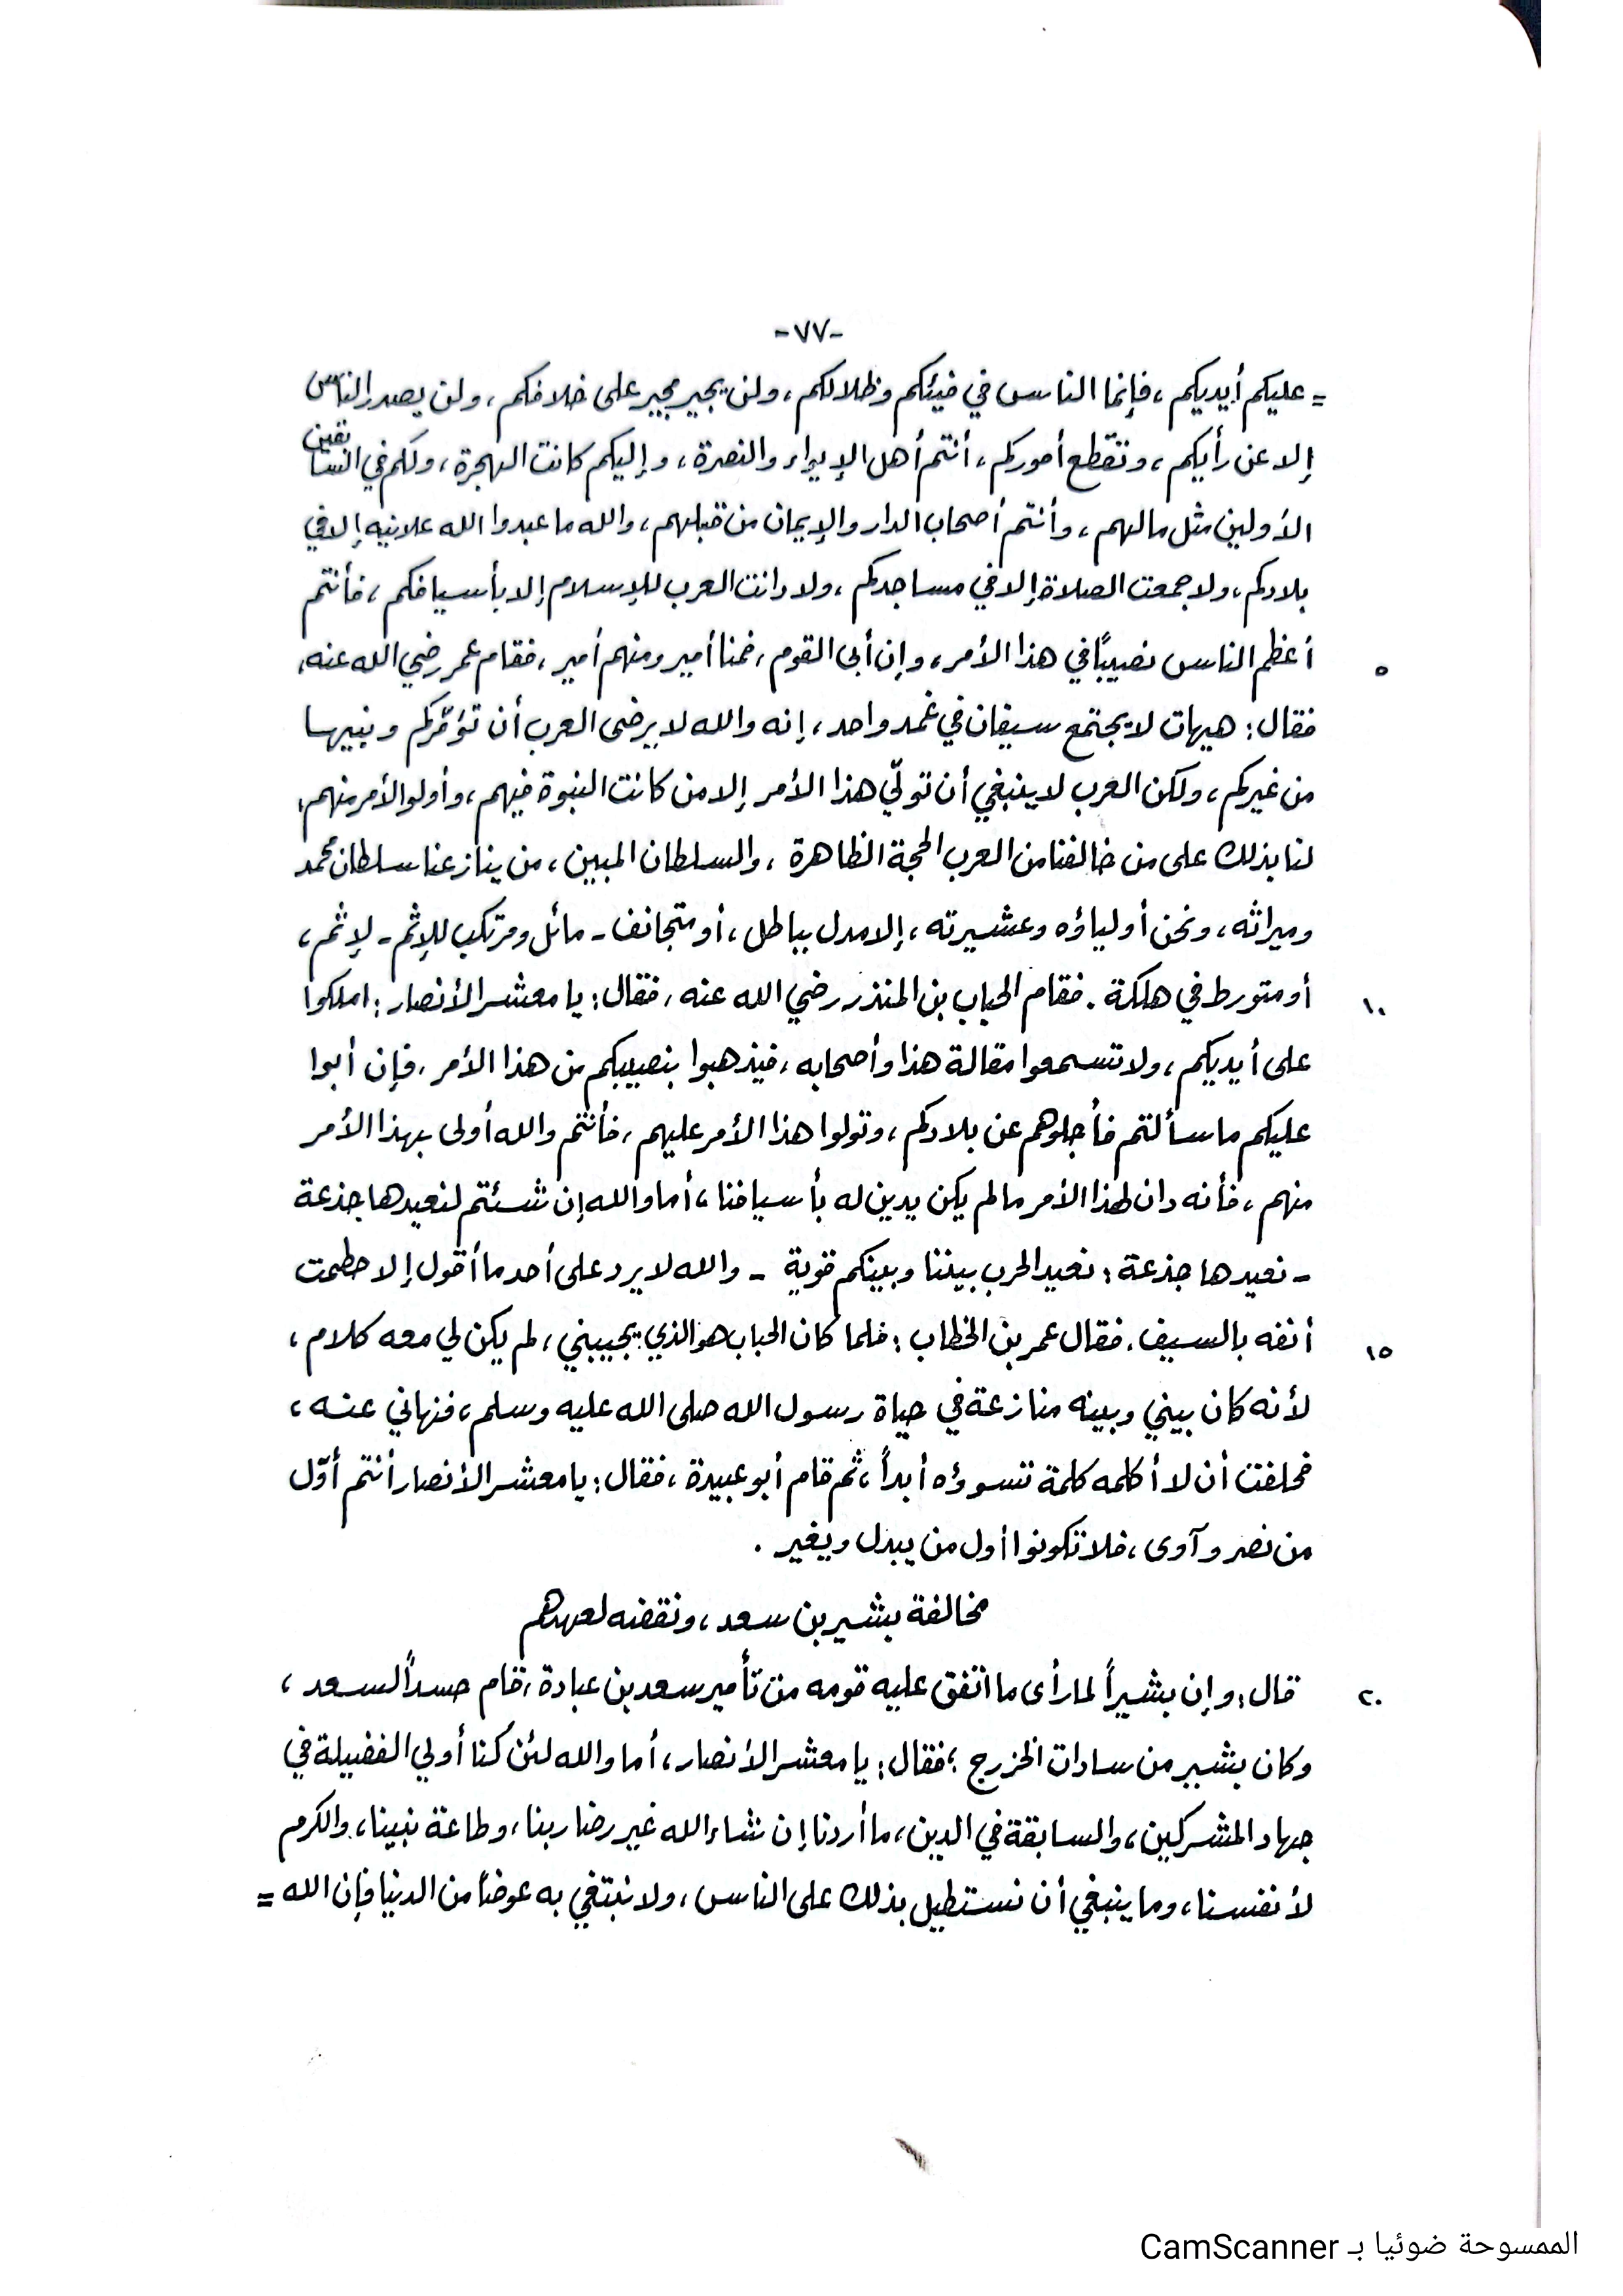 -٧٧-
= عليكم أيديكم ، فإنما الناس في فيئكم وظلالكم ، ولن يجير مجير على خلافكم ، ولن يصدر الناس
إلا عن رأيكم ، وتقطع أموركم ، أنتم أهل الإيواء والنصرة ، وإليكم كانت الهجرة ، ولكم في السابقين
الأولين مثل مالهم ، وأنتم أصحاب الدار والإيمان من قبلهم ، والله ما عبدوا الله علانيه إلا في
بلادكم ، ولا جمعت الصلاة إلا في مساجدكم ، ولا دانت العرب للإسلام إلا بأسيافكم ، فأنتم
٥ أعظم الناس نصيبًا في هذا الأمر ، وإن أبى القوم ، فمنا أمير ومنهم أمير ، فقام عمر رضي الله عنه ،
فقال : هيهات لا يجتمع سيفان في غمد واحد ، إنه والله لا يرضى العرب أن تؤمّركم ونبيها
من غيركم ، ولكن العرب لا ينبغي أن تولّي هذا الأمر إلا من كانت النبوة فيهم ، وأولوا الأمر منهم ،
لنا بذلك على من خالفنا من العرب الحجة الظاهرة ، والسلطان المبين ، من ينازعنا سلطان محمد
وميراثه ، ونحن أولياؤه وعشيرته ، إلا مدل بباطل ، أو متجانف - مائل ومرتكب للإثم - لإثم ،
١٠ أو متورط في هلكة . فقام الحباب بن المنذر رضي الله عنه ، فقال : يا معشر الأنصار : املكوا
على أيديكم ، ولا تسمعوا مقالة هذا وأصحابه ، فيذهبوا بنصيبكم من هذا الأمر ، فإن أبوا
عليكم ما سألتم فأجلوهم عن بلادكم ، وتولوا هذا الأمر عليهم ، فأنتم والله أولى بهذا الأمر
منهم ، فأنه دان لهذا الأمر ما لم يكن يدين له بأسيافنا ، أما والله إن شئتم لنعيدها جذعة
- نعيدها جذعة : نعيد الحرب بيننا وبينكم قوية - والله لا يرد على أحد ما أقول إلا حطمت
١٥ أنفه بالسيف . فقال عمر بن الخطاب : فلما كان الحباب هو الذي يجيبني ، لم يكن لي معه كلام ،
لأنه كان بيني وبينه منازعة في حياة رسول الله صلى الله عليه وسلم ، فنهاني عنه ،
فحلفت أن لا أكلمه كلمة تسوؤه أبداً ، ثم قام أبو عبيدة ، فقال : يا معشر الأنصار أنتم أوّل
من نصر وآوى ، فلا تكونوا أول من يبدل ويغير .
مخالفة بشير بن سعد ، ونقضه لعهدهم
٢٠ قال : وإن بشيراً لما رأى ما اتفق عليه قومه من تأمير سعد بن عبادة ، قام حسداً لسعد ،
وكان بشير من سادات الخزرج ؛ فقال : يا معشر الأنصار ، أما والله لئن كنا أولي الفضيلة في
جهاد المشركين ، والسابقة في الدين ، ما أردنا إن شاء الله غير رضا ربنا ، وطاعة نبينا ، والكرم
لأنفسنا ، وما ينبغي أن نستطيل بذلك على الناس ، ولا نبتغي به عوضاً من الدنيا فإن الله =
الممسوحة ضوئيا بـ CamScanner